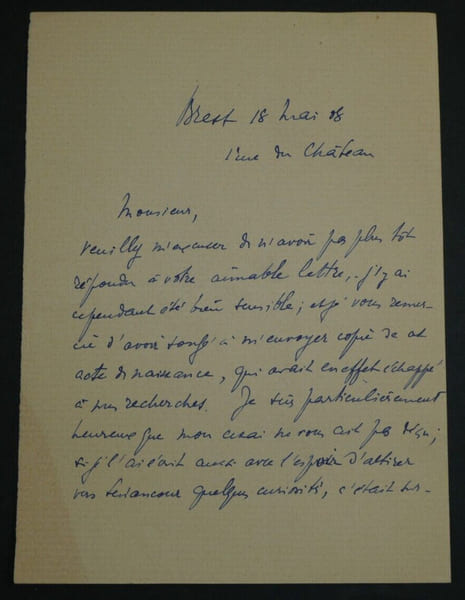 Brest 18 mai 08
1 rue du Château
Monsieur,
veuillez m'excuser de n'avoir pas plus tôt
répondu à votre aimable lettre, j'y ai
cependant été bien sensible; et je vous remer-
cie d'avoir songé à m'envoyer copie de cet
acte de naissance, qui avait en effet échappé
à mes recherches. Je suis particulièrement
heureux que mon essai ne vous ait pas déplu;
si je l'ai écrit aussi avec l'espoir d'attirer
vers Senancour quelque curiosité, c'était sur-